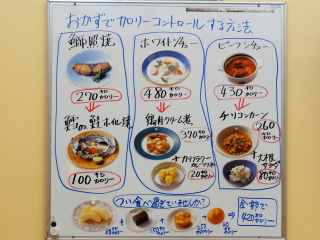 おかずでカロリーコントロールする方法
鰤照焼
270キロカロリー
鱈の ホイル焼
100キロカロリー
ホワイトシチュー
480キロカロリー
鶏肉クリーム煮
370キロカロリー
+
カリフラワー
カレーマリネ
20キロカロリー
ビーフシチュー
430キロカロリー
チリコンカーン
260キロカロリー
+
大根サラダ
80キロカロリー
つい食べ過ぎていませんか?
+ + + ⇒
全部で
420キロカロリー